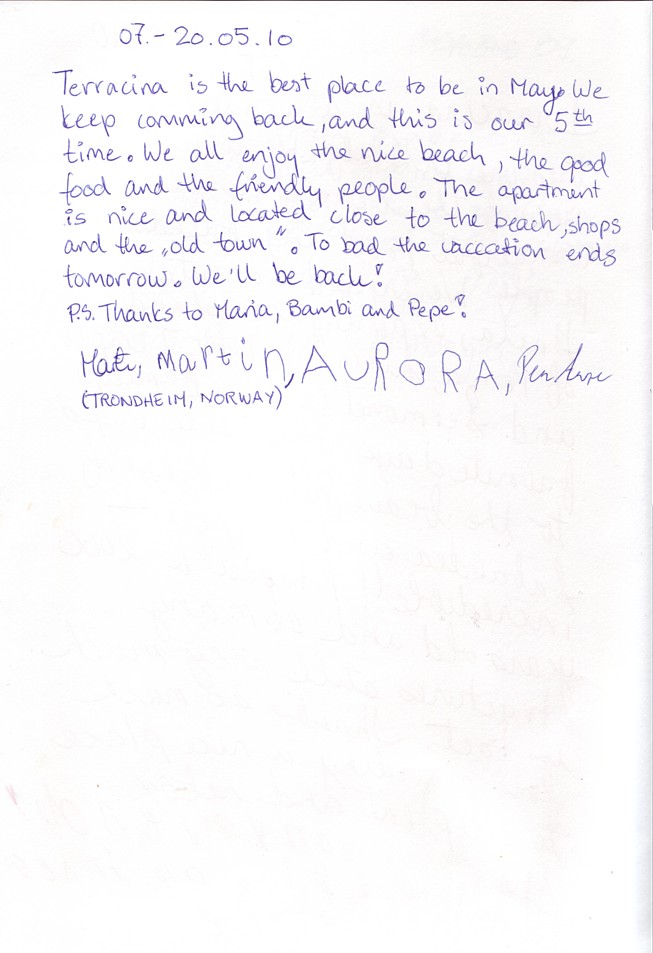 07.-20.05.10
Terracina is the best place to be in May. We
keep comming back, and this is our 5th
time. We all enjoy the nice beach, the good
food and the friendly people. The apartment
is nice and located close to the beach, shops
and the „old town”. To bad the vaccation ends
tomorrow. We'll be back!
P.S. Thanks to Maria, Bambi and Pepe!
Martin, AURORA,
(TRONDHEIM, NORWAY)